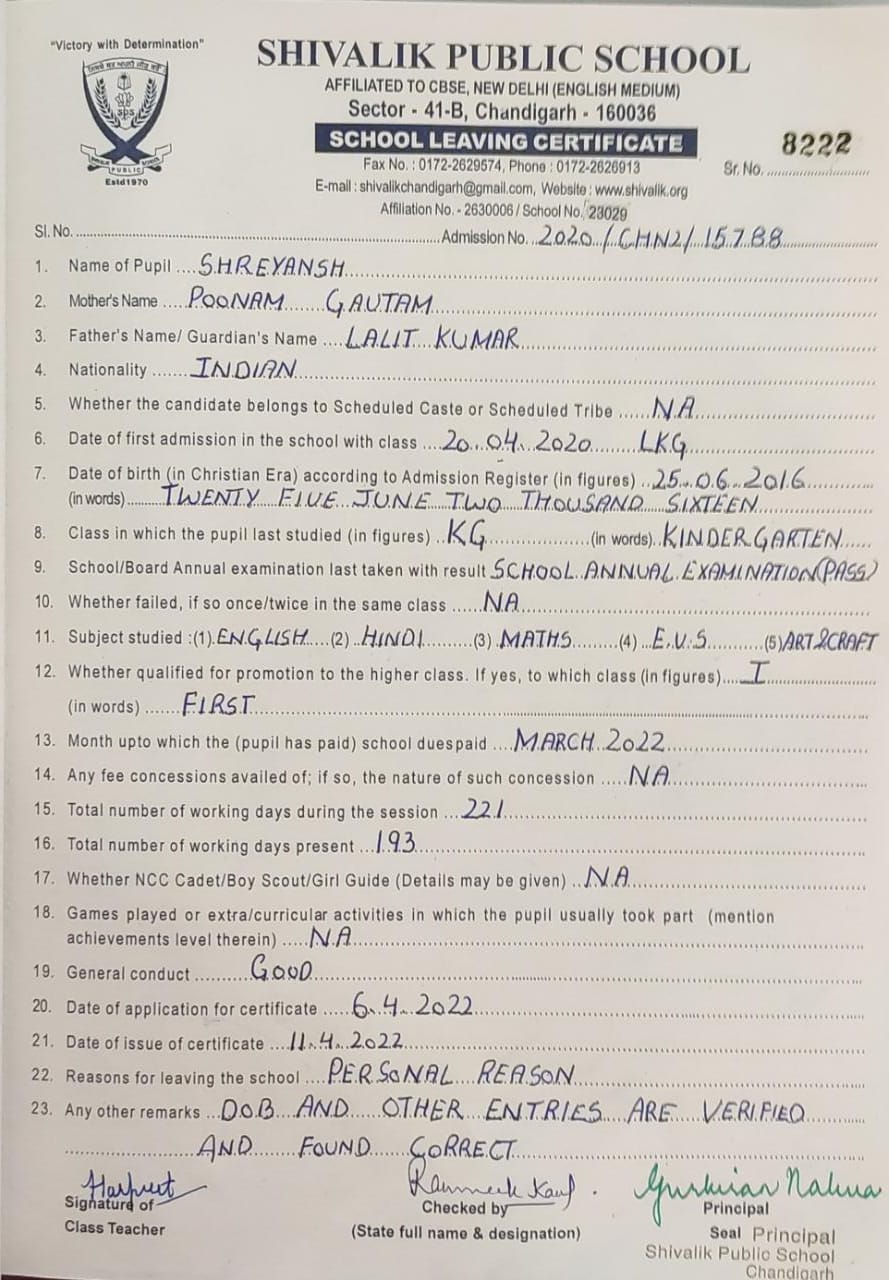 "Victory with Determination"
SHIVALIK PUBLIC SCHOOL
AFFILIATED TO CBSE, NEW DELHI (ENGLISH MEDIUM)
Sector - 41-B, Chandigarh - 160036
SCHOOL LEAVING CERTIFICATE
SPS
SHIVALIK PUBLIC SCHOOL
Estd1970
Fax No. : 0172-2629574, Phone : 0172-2626913
Sr. No. 8222
E-mail : shivalikchandigarh@gmail.com, Website : www.shivalik.org
Affiliation No. - 2630006 / School No. 23029
Sl. No. Admission No. 2020/CHN2/15788
1. Name of Pupil SHREYANSH
2. Mother's Name POONAM GAUTAM
3. Father's Name/ Guardian's Name LALIT KUMAR
4. Nationality INDIAN
5. Whether the candidate belongs to Scheduled Caste or Scheduled Tribe NA
6. Date of first admission in the school with class 20.04.2020 LKG
7. Date of birth (in Christian Era) according to Admission Register (in figures) 25.06.2016
(in words) TWENTY FIVE JUNE TWO THOUSAND SIXTEEN
8. Class in which the pupil last studied (in figures) KG (in words) KINDERGARTEN
9. School/Board Annual examination last taken with result SCHOOL ANNUAL EXAMINATION(PASS)
10. Whether failed, if so once/twice in the same class NA
11. Subject studied :(1) ENGLISH (2) HINDI (3) MATHS (4) E.V.S (5) ART&CRAFT
12. Whether qualified for promotion to the higher class. If yes, to which class (in figures) I
(in words) FIRST
13. Month upto which the (pupil has paid) school duespaid MARCH 2022
14. Any fee concessions availed of; if so, the nature of such concession NA
15. Total number of working days during the session 221
16. Total number of working days present 193
17. Whether NCC Cadet/Boy Scout/Girl Guide (Details may be given) NA
18. Games played or extra/curricular activities in which the pupil usually took part (mention
achievements level therein) NA
19. General conduct GOOD
20. Date of application for certificate 6.4.2022
21. Date of issue of certificate 11.4.2022
22. Reasons for leaving the school PERSONAL REASON
23. Any other remarks DOB AND OTHER ENTRIES ARE VERIFIED
AND FOUND CORRECT
Harpreet
Signature of
Class Teacher
Checked by
(State full name & designation)
Principal
Seal Principal
Shivalik Public School
Chandigarh